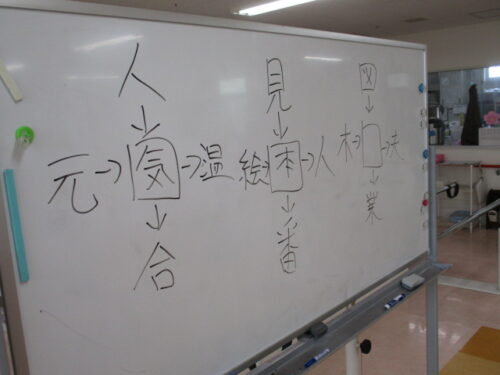 人
↓
元→気→温
↓
合
見
↓
絵→本→人
↓
番
図
↓
木→□→夫
↓
業